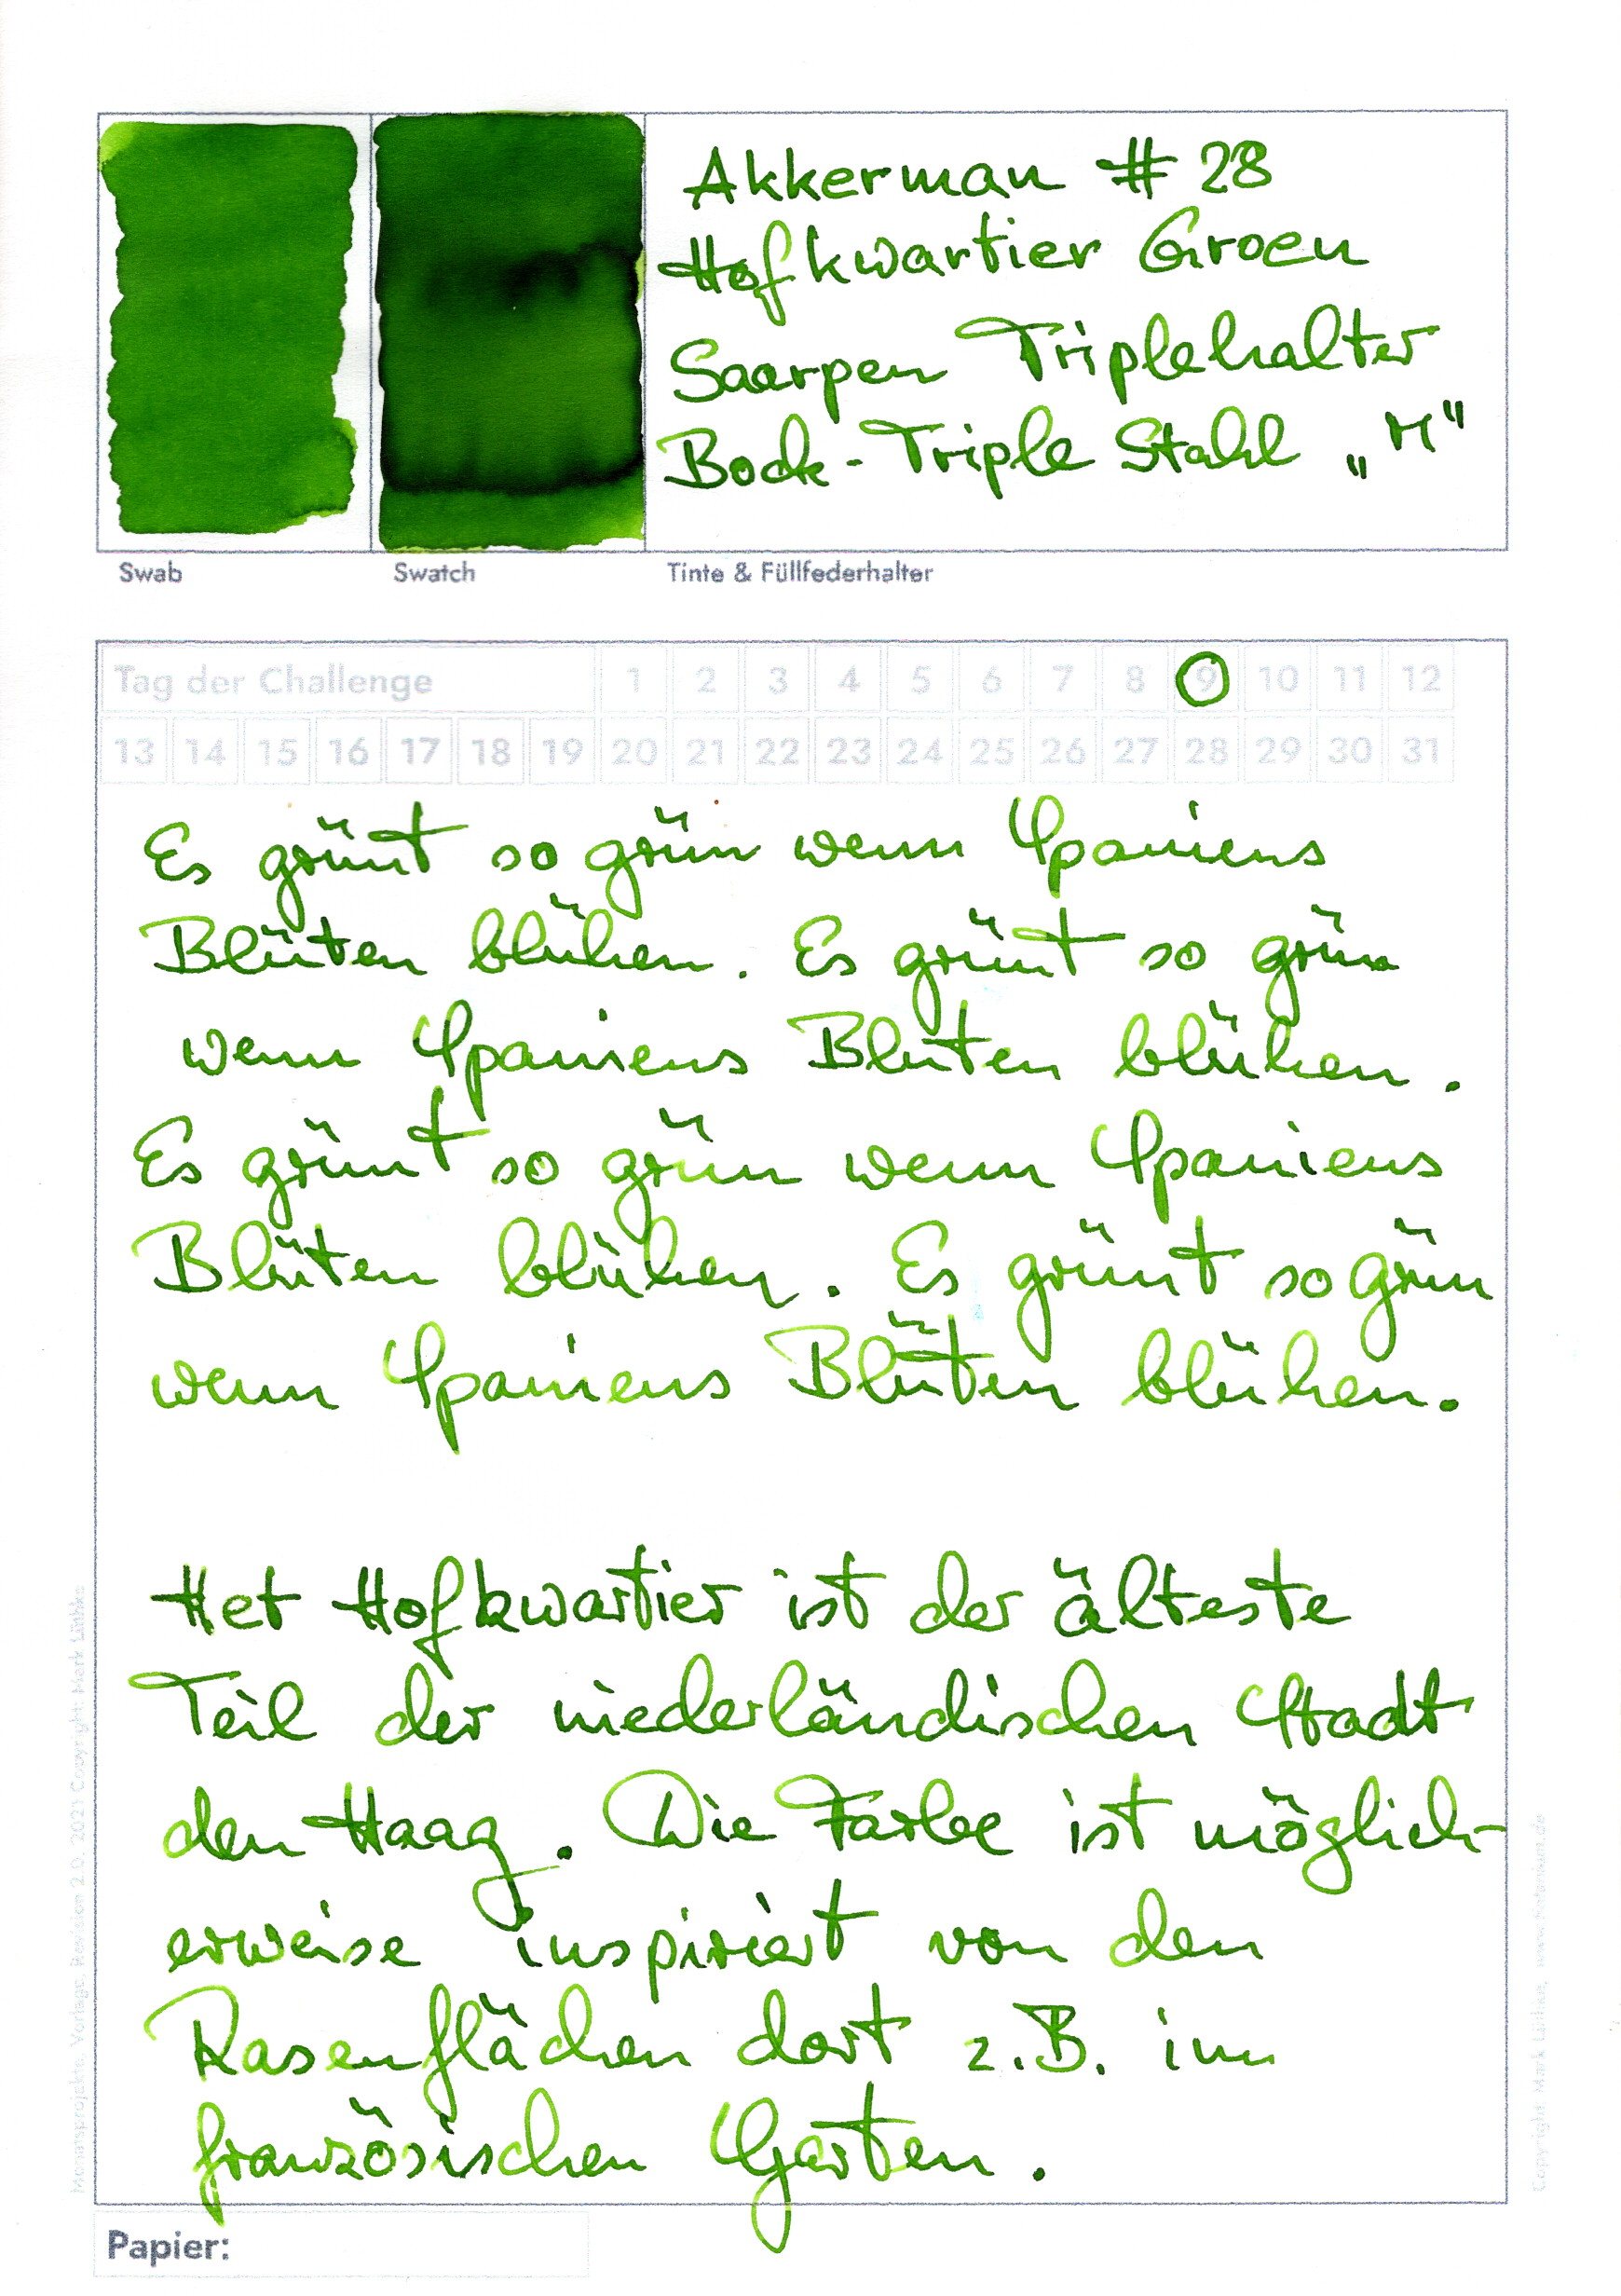 Akkerman # 28
Hofkwartier Groen
Saarpen Triplehalter
Bock-Triple Stahl „M"
Swab
Swatch
Tinte & Füllfederhalter
Tag der Challenge 1 2 3 4 5 6 7 8 9 10 11 12
13 14 15 16 17 18 19 20 21 22 23 24 25 26 27 28 29 30 31
Es grünt so grün wenn Spaniens
Blüten blühen. Es grünt so grün
wenn Spaniens Blüten blühen.
Es grünt so grün wenn Spaniens
Blüten blühen. Es grünt so grün
wenn Spaniens Blüten blühen.
Het Hofkwartier ist der älteste
Teil der niederländischen Stadt
den Haag. Die Farbe ist möglich-
erweise inspiriert von den
Rasenflächen dort z.B. im
französischen Garten.
Papier:
Monatsprojekte Vorlage, Revision 2.0, 2021 Copyright: Mark Lüthke
Copyright: Mark Lüthke,